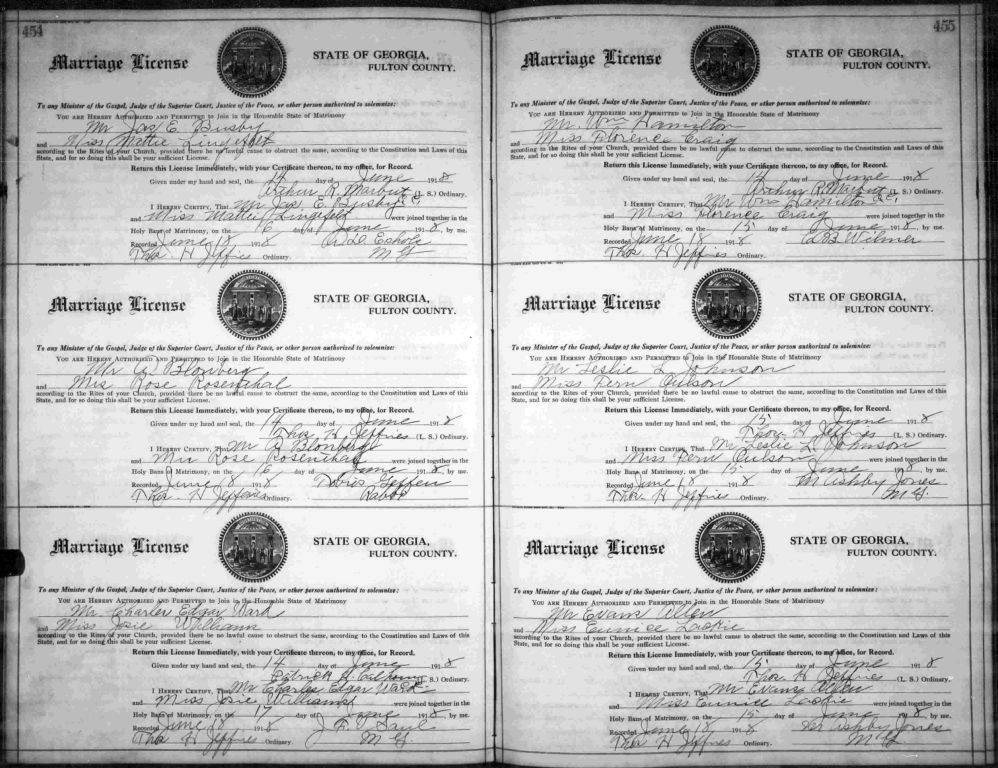 454
Marriage License
STATE OF GEORGIA,
FULTON COUNTY.
To any Minister of the Gospel, Judge of the Superior Court, Justice of the Peace, or other person authorized to solemnize:
YOU ARE HEREBY AUTHORIZED AND PERMITTED to Join in the Honorable State of Matrimony
Mr Jas E. Busby
and Miss Mattie
according to the Rites of your Church, provided there be no lawful cause to obstruct the same, according to the Constitution and Laws of this
State, and for so doing this shall be your sufficient License.
Return this License Immediately, with your Certificate thereon, to my office, for Record.
Given under my hand and seal, the 14 day of June 1918
Arthur R. Marbut (L. S.) Ordinary.
I HEREBY CERTIFY, That Mr Jas E. Busby
and Miss Mattie were joined together in the
Holy Bans of Matrimony, on the 16 day of June 1918, by me.
Recorded June 18 1918
Thos H Jeffries Ordinary. M G
Marriage License
STATE OF GEORGIA,
FULTON COUNTY.
To any Minister of the Gospel, Judge of the Superior Court, Justice of the Peace, or other person authorized to solemnize:
YOU ARE HEREBY AUTHORIZED AND PERMITTED to Join in the Honorable State of Matrimony
Mr A Blonberg
and Mrs Rose Rosenthal
according to the Rites of your Church, provided there be no lawful cause to obstruct the same, according to the Constitution and Laws of this
State, and for so doing this shall be your sufficient License.
Return this License Immediately, with your Certificate thereon, to my office, for Record.
Given under my hand and seal, the 14 day of June 1918
Thos H Jeffries (L. S.) Ordinary.
I HEREBY CERTIFY, That Mr A Blonberg
and Mrs Rose Rosenthal were joined together in the
Holy Bans of Matrimony, on the 16 day of June 1918, by me.
Recorded June 18 1918 Tobias Geffen
Thos H Jeffries Ordinary. Rabbi
Marriage License
STATE OF GEORGIA,
FULTON COUNTY.
To any Minister of the Gospel, Judge of the Superior Court, Justice of the Peace, or other person authorized to solemnize:
YOU ARE HEREBY AUTHORIZED AND PERMITTED to Join in the Honorable State of Matrimony
Mr Charles Edgar Ward
and Miss Josie Williams
according to the Rites of your Church, provided there be no lawful cause to obstruct the same, according to the Constitution and Laws of this
State, and for so doing this shall be your sufficient License.
Return this License Immediately, with your Certificate thereon, to my office, for Record.
Given under my hand and seal, the 14 day of June 1918
Patrick H. Calhoun (L. S.) Ordinary.
I HEREBY CERTIFY, That Mr Charles Edgar Ward
and Miss Josie Williams were joined together in the
Holy Bans of Matrimony, on the 17 day of June 1918, by me.
Recorded June 18 1918
Thos H Jeffries Ordinary. M G.
455
Marriage License
STATE OF GEORGIA,
FULTON COUNTY.
To any Minister of the Gospel, Judge of the Superior Court, Justice of the Peace, or other person authorized to solemnize:
YOU ARE HEREBY AUTHORIZED AND PERMITTED to Join in the Honorable State of Matrimony
Mr. Wm Hamilton
and Miss Florence Craig
according to the Rites of your Church, provided there be no lawful cause to obstruct the same, according to the Constitution and Laws of this
State, and for so doing this shall be your sufficient License.
Return this License Immediately, with your Certificate thereon, to my office, for Record.
Given under my hand and seal, the 14 day of June 1918
Arthur R. Marbut (L. S.) Ordinary.
I HEREBY CERTIFY, That Mr Wm Hamilton
and Miss Florence Craig were joined together in the
Holy Bans of Matrimony, on the 15 day of June 1918, by me.
Recorded June 18 1918 C B Wilmer
Thos H Jeffries Ordinary.
Marriage License
STATE OF GEORGIA,
FULTON COUNTY.
To any Minister of the Gospel, Judge of the Superior Court, Justice of the Peace, or other person authorized to solemnize:
YOU ARE HEREBY AUTHORIZED AND PERMITTED to Join in the Honorable State of Matrimony
Mr Leslie L Johnson
and Miss Fern
according to the Rites of your Church, provided there be no lawful cause to obstruct the same, according to the Constitution and Laws of this
State, and for so doing this shall be your sufficient License.
Return this License Immediately, with your Certificate thereon, to my office, for Record.
Given under my hand and seal, the 15 day of June 1918
Thos H Jeffries (L. S.) Ordinary.
I HEREBY CERTIFY, That Mr Leslie L. Johnson
and Miss Fern were joined together in the
Holy Bans of Matrimony, on the 15 day of June 1918, by me.
Recorded June 18 1918 M Ashby Jones
Thos H Jeffries Ordinary. M G.
Marriage License
STATE OF GEORGIA,
FULTON COUNTY.
To any Minister of the Gospel, Judge of the Superior Court, Justice of the Peace, or other person authorized to solemnize:
YOU ARE HEREBY AUTHORIZED AND PERMITTED to Join in the Honorable State of Matrimony
Mr Evans Allen
and Miss Eunice
according to the Rites of your Church, provided there be no lawful cause to obstruct the same, according to the Constitution and Laws of this
State, and for so doing this shall be your sufficient License.
Return this License Immediately, with your Certificate thereon, to my office, for Record.
Given under my hand and seal, the 15 day of June 1918
Thos H Jeffries (L. S.) Ordinary.
I HEREBY CERTIFY, That Mr Evans Allen
and Miss Eunice were joined together in the
Holy Bans of Matrimony, on the 15 day of June 1918, by me.
Recorded June 18 1918 Ashby Jones
Thos H Jeffries Ordinary. M G